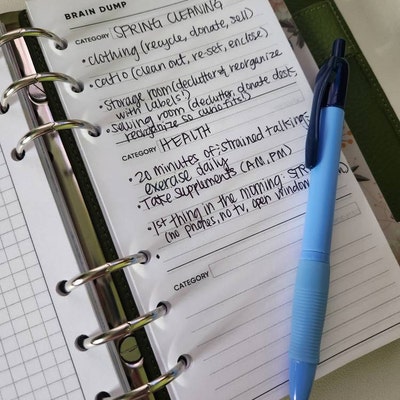 BRAIN DUMP
CATEGORY SPRING CLEANING
• clothing (recycle, donate, sell)
• catio (clean out, re-set, enclose)
• storage room (declutter, reorganize
with labels!)
• sewing room (declutter, donate dest,
reorganize so
CATEGORY HEALTH
• 20 minutes of strained talking
exercise daily
• Take supplements (A.M, PM)
• 1st thing in the morning:
(no phones, no tv, open window
•
CATEGORY